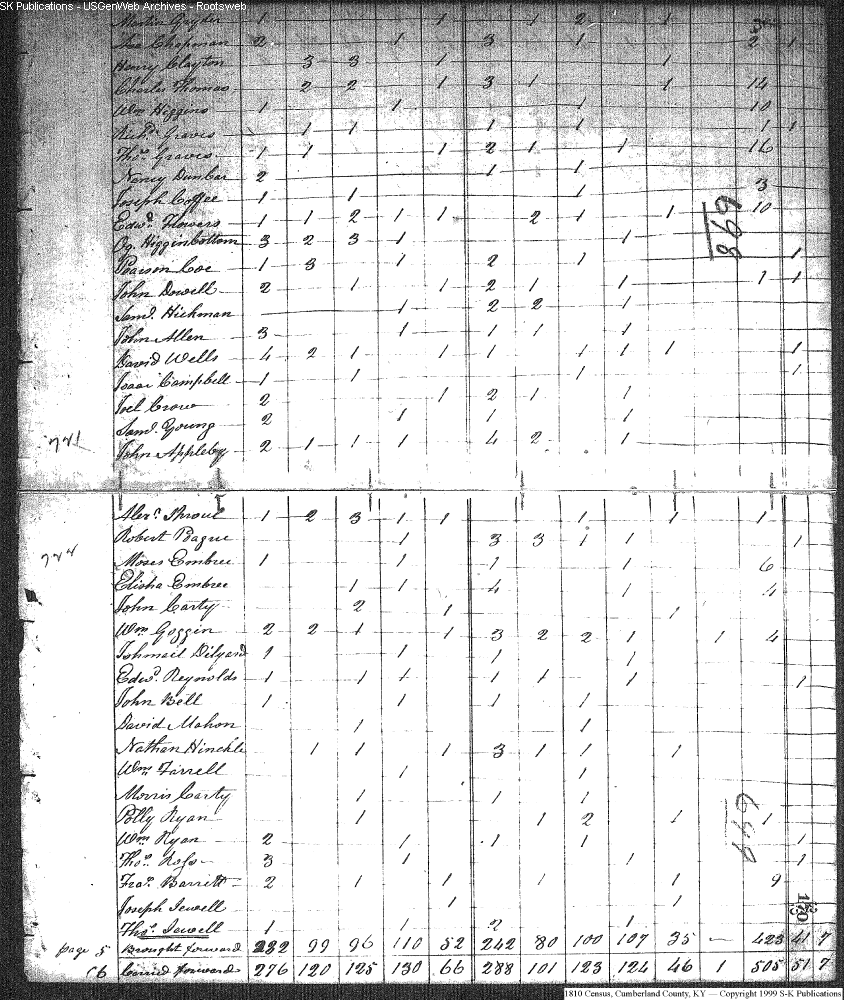 SK Publications - USGenWeb Archives - Rootsweb
1 1 1 2 1
Chapman 2 1 3 1 2 1
Henry Clayton 3 3 1 1
Charles Thomas 2 2 1 3 1 1 14
Wm Higgins 1 1 1 10
Richd. Graves 1 1 1 1 1 1
Thos. Graves 1 1 1 2 1 1 16
Nancy Dunbar 2 1 1
Joseph Coffee 1 1 1 3
Edwd. Flowers 1 1 2 1 1 2 1 1 10
698
Oz. Higginbottom 3 2 3 1 1
Pearson Coe 1 3 1 2 1 1
John Dowell 2 1 1 2 1 1 1 1
Saml. Hickman 1 2 2 1
John Allen 3 1 1 1 1
David Wells 4 2 1 1 1 1 1 1 1
Isaac Campbell 1 1 1 1
Joel Crow 2 1 2 1 1
Saml. Young 2 1 1 1
721
John Appleby 2 1 1 1 4 2 1
Alexr. 1 2 3 1 1 1 1 1
Robert Pague 1 3 3 1 1 1
724
Moses Embree 1 1 1 1 6
Elisha Embree 1 1 4 1 4
John Carty 2 1 1
Wm Goggin 2 2 1 1 3 2 2 1 1 4
Ishmael Dilyard 1 1 1 1
Edwd. Reynolds 1 1 1 1 1 1 1
John Bell 1 1 1 1
David Mahon 1 1
Nathan Hinckle 1 1 1 3 1 1 1
Wm. Farrell 1 1
Morris Carty 1 1 1
Polly Ryan 1 1 2 1 1
Wm Ryan 2 1 1 1 1
Thos. Ross 3 1 1 1
Fras. Barrett 2 1 1 1 1 9
Joseph Jewell 1 1
Thos. Jewell 1 1 2 1
page 5 Brought forward 232 99 96 110 52 242 80 100 107 35 — 423 41 7
C6 Carried forward 276 120 125 130 66 288 101 123 124 46 1 505 51 7
1810 Census, Cumberland County, KY — Copyright 1999 S-K Publications